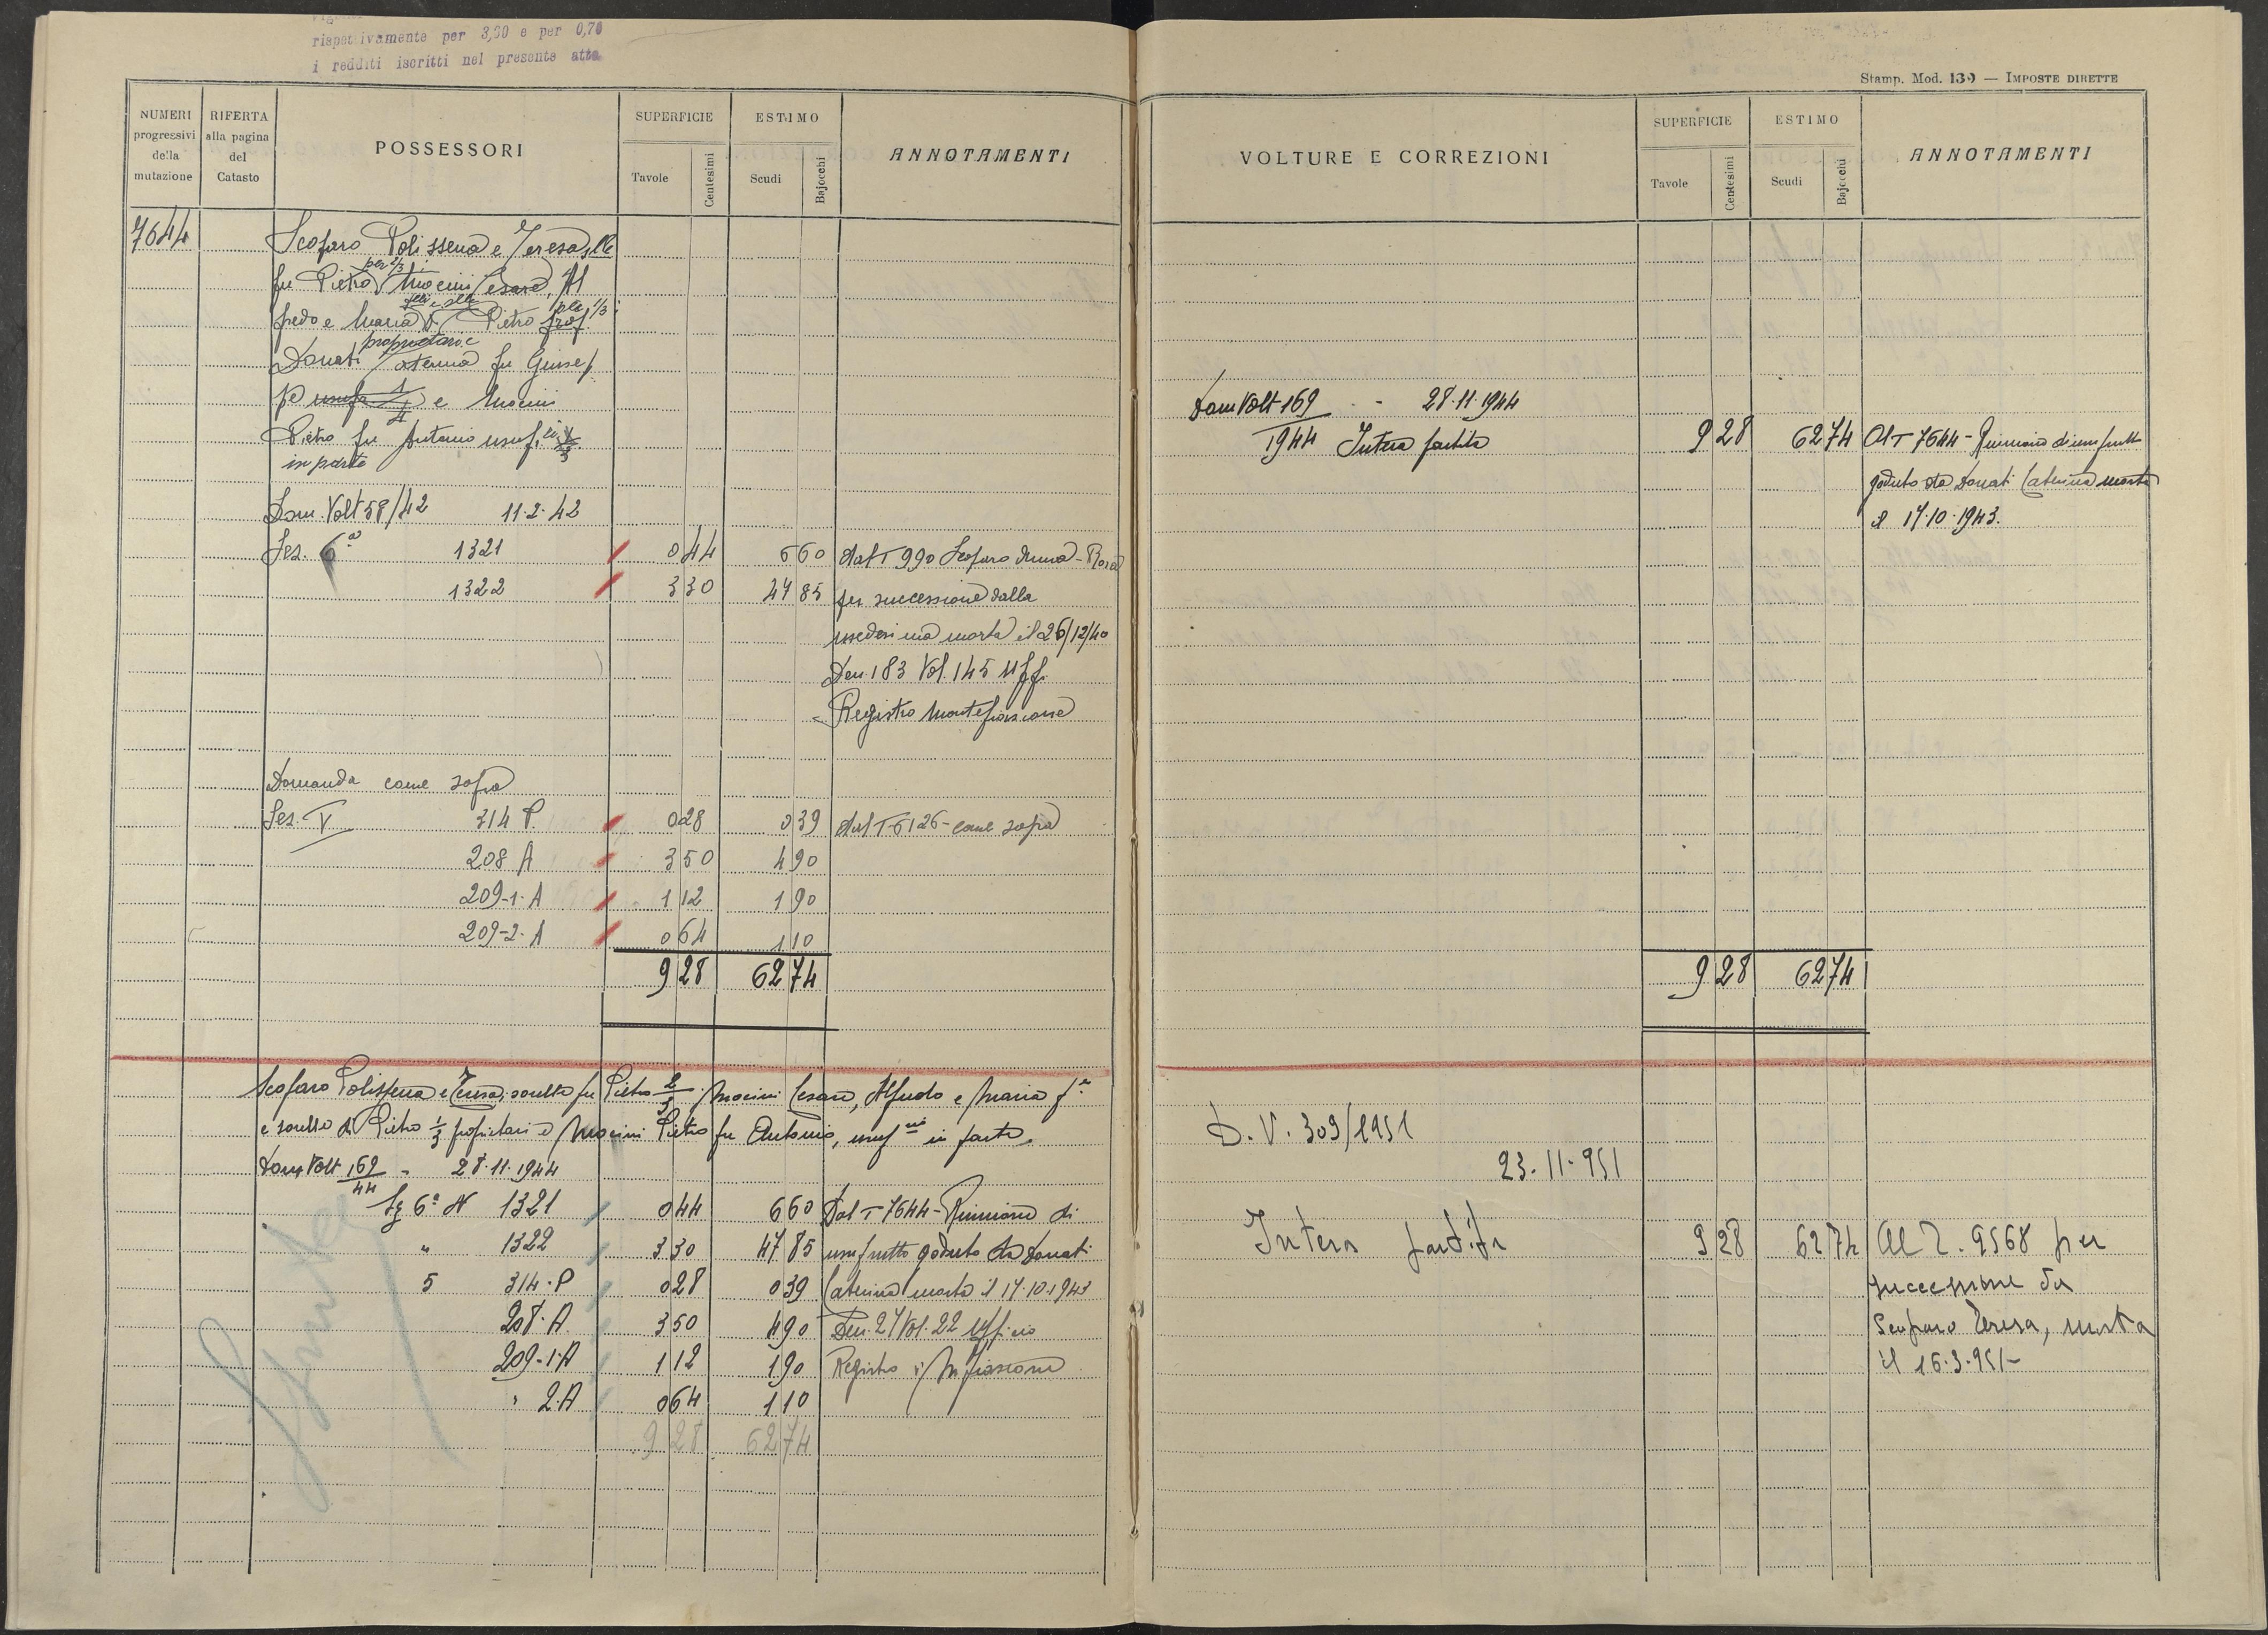 rispettivamente per 3,30 e per 0,70
i redditi iscritti nel presente atto
NUMERI progressivi della mutazione
RIFERTA alla pagina del Catasto
POSSESSORI
SUPERFICIE
Tavole
Centesimi
ESTIMO
Scudi
Bajocchi
ANNOTAMENTI
7644
Scoparo Polissena e Teresa slle
fu Pietro per 2/3 Mocini Cesare, Al
fredo e Maria flli e slle D. Pietro per 1/3
proprietari e
Donati Caterina fu Giusep
pe e Mocini
Pietro fu Antonio usuf.
in parte
Dom. Volt 58/42 11.2.42
Sez. 6ª 1321 0 44 6 60 dal T 990 Scoparo Anna-Rosa
1322 3 30 47 85 per successione dalla
medesima morta il 26/12/40
Den. 183 Vol. 145 Uff.
Registro Montefiascone
Domanda come sopra
Sez. V 314 P. 0 28 0 39 dal T 6126 - come sopra
208 A 3 50 4 90
209-1-A 1 12 1 90
209-2-A 0 64 1 10
9 28 62 74
Scoparo Polissena e Teresa, sorelle fu Pietro 2/3 Mocini Cesare, Alfredo e Maria f.
e sorella di Pietro 1/3 proprietari e Mocini Pietro fu Antonio, usuf. in parte.
Dom Volt 169/44 - 28.11.1944
Sz 6ª N 1321 0 44 6 60 Dal T 7644 - Riunione di
" 1322 3 30 47 85 usufrutto goduto da Donati
5 314-P 0 28 0 39 Caterina morta il 17.10.1943
208-A 3 50 4 90 Den. 27 Vol. 22 Ufficio
209-1-A 1 12 1 90 Registro di M.fiascone
" 2-A 0 64 1 10
9 28 62 74
Stamp. Mod. 139 — IMPOSTE DIRETTE
VOLTURE E CORREZIONI
SUPERFICIE
Tavole
Centesimi
ESTIMO
Scudi
Bajocchi
ANNOTAMENTI
Dom Volt 169 - 28.11.1944
1944 Intera partita 9 28 62 74 Al T 7644 - Riunione di usufrutto
goduto da Donati Caterina morta
il 17.10.1943.
9 28 62 74
D. V. 309/1951
23-11-951
Intera partita 9 28 62 74 Al T. 9568 per
successione da
Scoparo Teresa, morta
il 16.3.951-